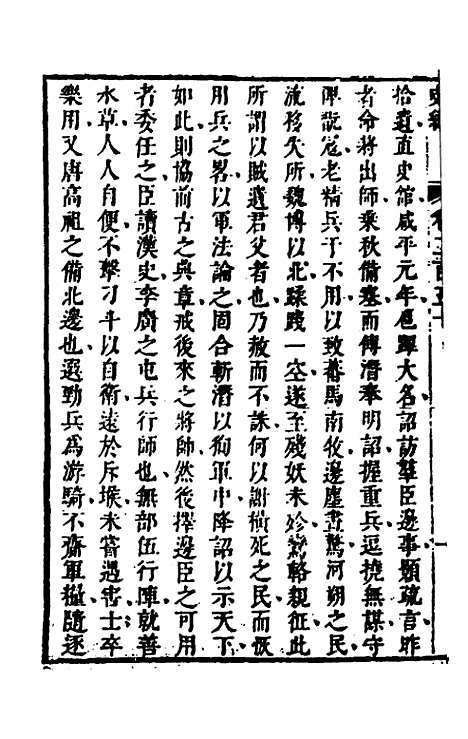 拾遺直史館咸平元年扈蹕大名詔訪羣臣邊事顗疏言昨
者命將出師乘秋備塞而傅潛奉明詔握重兵逗撓無謀守
陴翫寇老精兵于不用以致蕃馬南牧邊塵晝驚河朔之民
流移失所魏博以北蹂踐一空遂至殘妖未殄鸞輅親征此
所謂以賊遺君父者也乃赦而不誅何以謝橫死之民而伏
用兵之畧以軍法論之固合斬潛以徇軍中降詔以示天下
如此則協前古之典章戒後來之將帥然後擇邊臣之可用
者委任之臣讀漢史李廣之屯兵行師也無部伍行陣就善
水草人人自便不擊刁斗以自衛遠於斥堠未嘗遇害士卒
樂用又唐高祖之備北邊也選勁兵爲游騎不齎軍糧隨逐